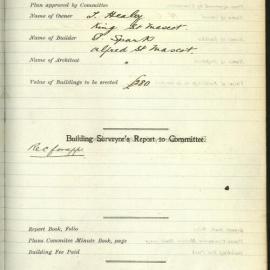 Plan approved by Committee
Name of Owner T. Healey
King St Mascot
Name of Builder P Spark
Alfred St Mascot
Name of Architect "
Value of Buildings to be erected £980
Building Surveyor's Report to Committee.
Rec f app
Report Book, Folio
Plans Committee Minute Book, page
Building Fee Paid